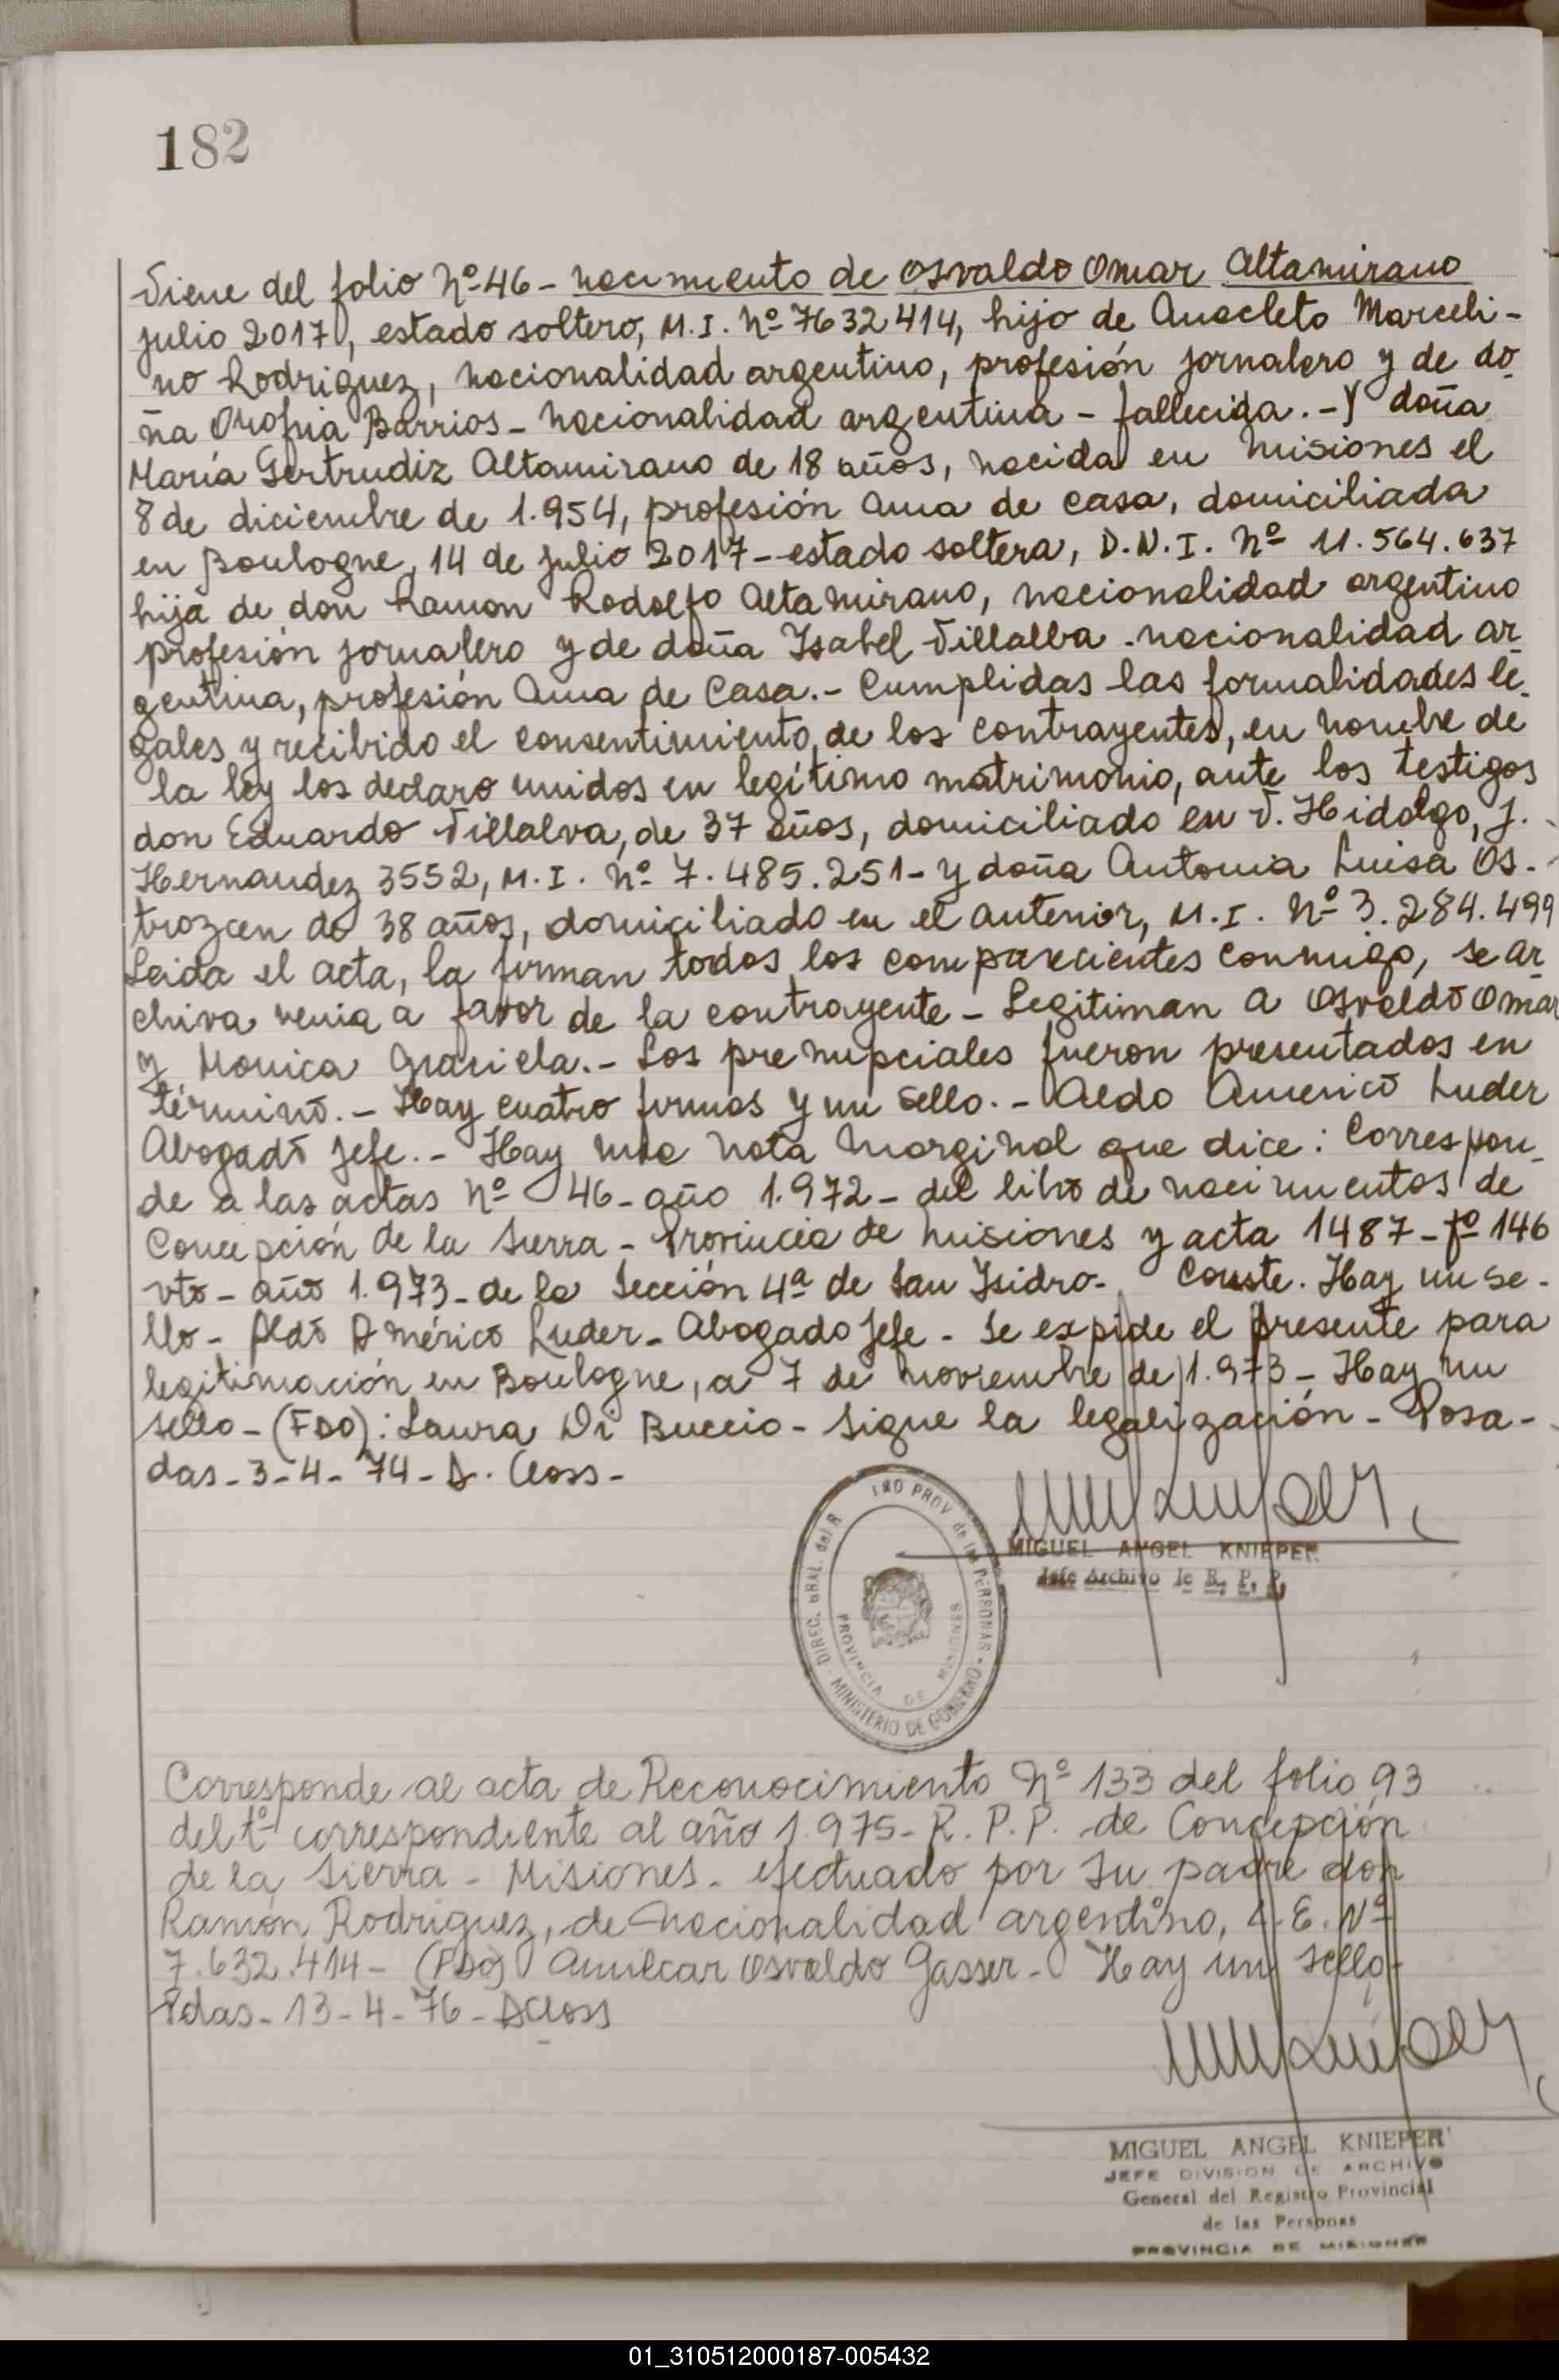 182
Viene del folio Nº 46 - nacimiento de Osvaldo Omar Altamirano
julio 2017, estado soltero, M.I. Nº 7632414, hijo de Anacleto Marceli-
no Rodriguez, nacionalidad argentino, profesión jornalero y de do-
ña Onofria Barrios - nacionalidad argentina - fallecida.- Y doña
María Gertrudiz Altamirano de 18 años, nacida en Misiones el
8 de diciembre de 1.954, profesión Ama de casa, domiciliada
en Boulogne, 14 de julio 2017 - estado soltera, D.N.I. Nº 11.564.637
hija de don Ramon Rodolfo Altamirano, nacionalidad argentino
profesión jornalero y de doña Isabel Villalba - nacionalidad ar-
gentina, profesión Ama de Casa.- Cumplidas las formalidades le-
gales y recibido el consentimiento, de los contrayentes, en nombre de
la ley los declaro unidos en legítimo matrimonio, ante los testigos
don Eduardo Villalva, de 37 años, domiciliado en V. Hidalgo, J.
Hernandez 3552, M.I. Nº 7.485.251 - y doña Antonia Luisa Os-
trozcen de 38 años, domiciliado en el anterior, M.I. Nº 3.284.499
Leida el acta, la firman todos los comparecientes conmigo, se ar-
chiva venia a favor de la contrayente - Legitiman a Osvaldo Omar
y Monica Graciela.- Los prenupciales fueron presentados en
término.- Hay cuatro firmas y un sello.- Aldo Americo Luder
Abogado Jefe.- Hay una nota marginal que dice: Correspon-
de a las actas Nº 46 - año 1.972 - del libro de nacimientos de
Concepción de la Sierra - Provincia de Misiones y acta 1487 - fº 146
vto - año 1.973 - de la Sección 4ª de San Isidro - Conste. Hay un se-
llo - Aldo Américo Luder - Abogado Jefe - Se expide el presente para
legitimación en Boulogne, a 7 de noviembre de 1.973 - Hay un
sello - (FDO): Laura Di Buccio - Sigue la legalización - Posa-
das - 3-4-74 - D. Closs -
DIREC. GRAL. del R PROV de las PERSONAS - MINISTERIO DE GOBIERNO
PROVINCIA DE MISIONES
MIGUEL ANGEL KNIEPER
Jefe Archivo R. P. P.
Corresponde al acta de Reconocimiento Nº 133 del folio 93
del tº correspondiente al año 1.975 - R.P.P. de Concepción
de la Sierra - Misiones - efectuado por su padre don
Ramón Rodriguez, de nacionalidad argentino, L.E. Nº
7.632.414 - (FDO) Amilcar Osvaldo Gasser - Hay un sello -
Pdas - 13-4-76 - DCloss
MIGUEL ANGEL KNIEPER
JEFE DIVISION DE ARCHIVO
General del Registro Provincial
de las Personas
PROVINCIA DE MISIONES
01_310512000187-005432